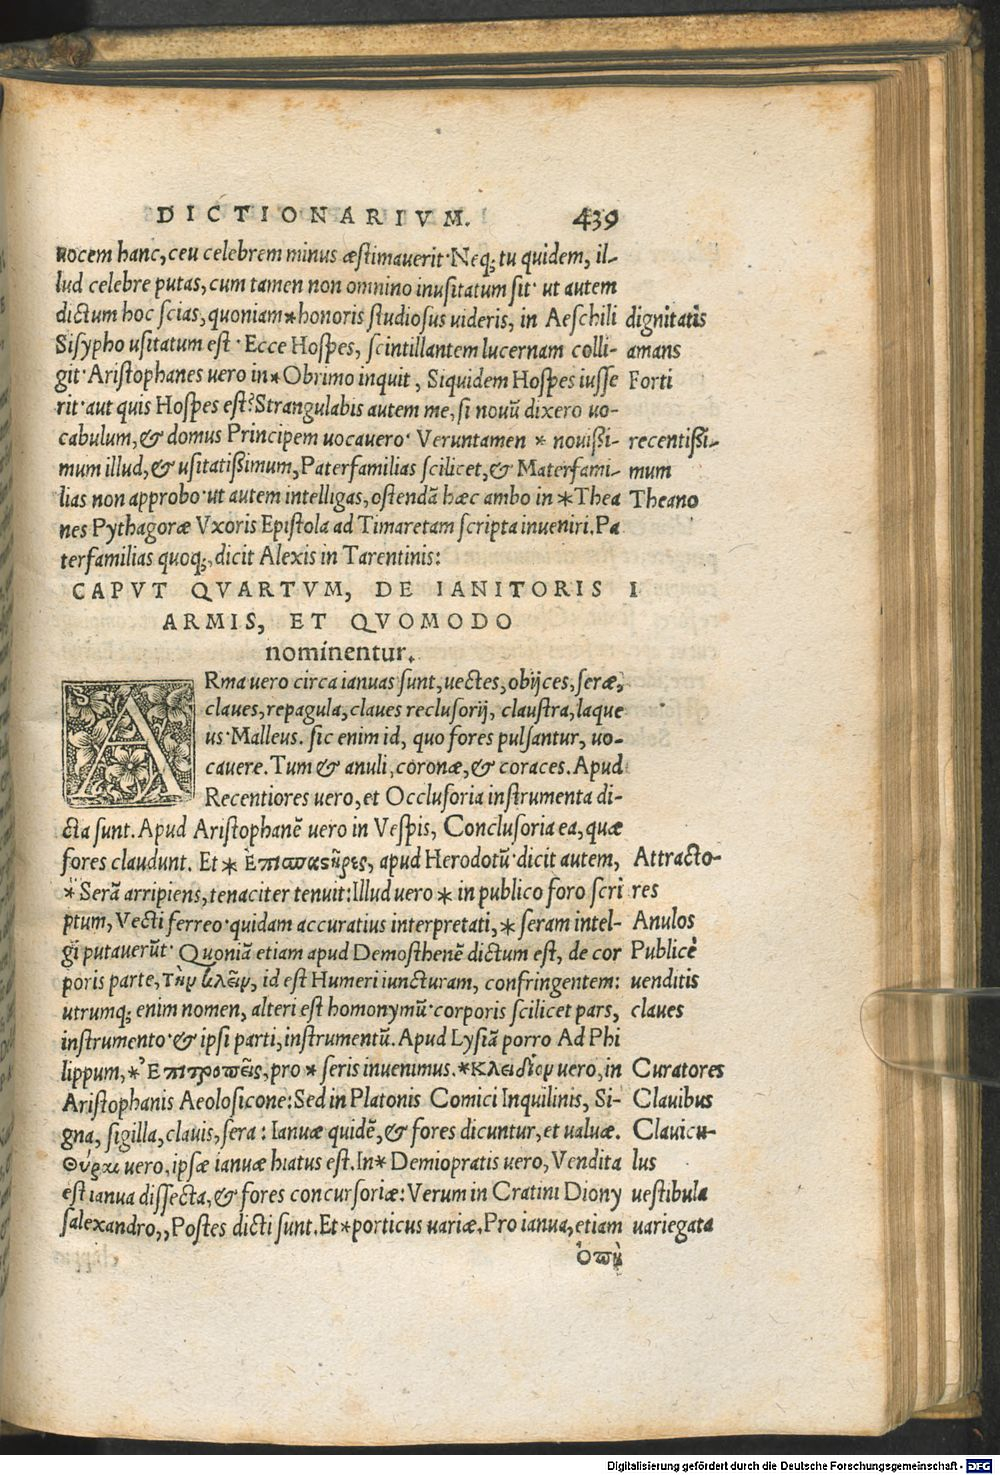 DICTIONARIVM. 439
uocem hanc, ceu celebrem minus æstimauerit· Neq; tu quidem, il-
lud celebre putas, cum tamen non omnino inusitatum sit· ut autem
dictum hoc scias, quoniam * honoris studiosus uideris, in Aeschili dignitatis
Sisypho usitatum est · Ecce Hospes, scintillantem lucernam colli- amans
git· Aristophanes uero in * Obrimo inquit, Siquidem Hospes iusse Forti
rit· aut quis Hospes est? Strangulabis autem me, si nouũ dixero uo-
cabulum, & domus Principem uocauero· Veruntamen * nouißi- recentißi-
mum illud, & usitatißimum, Paterfamilias scilicet, & Materfami- mum
lias non approbo· ut autem intelligas, ostendã hæc ambo in * Thea Theano
nes Pythagoræ Vxoris Epistola ad Timaretam scripta inueniri. Pa
terfamilias quoq;, dicit Alexis in Tarentinis:
CAPVT QVARTVM, DE IANITORIS I
ARMIS, ET QVOMODO
nominentur.
ARma uero circa ianuas sunt, uectes, obijces, seræ,
claues, repagula, claues reclusorij, claustra, laque
us· Malleus. sic enim id, quo fores pulsantur, uo-
cauere. Tum & anuli, coronæ, & coraces. Apud
Recentiores uero, et Occlusoria instrumenta di-
cta sunt. Apud Aristophanẽ uero in Vespis, Conclusoria ea, quæ
fores claudunt. Et * Ἐπισπαστῆρες, apud Herodotũ· dicit autem, Attracto-
* Serã arripiens, tenaciter tenuit: Illud uero * in publico foro scri res
ptum, Vecti ferreo· quidam accuratius interpretati, * seram intel- Anulos
gi putauerũt· Quoniã etiam apud Demosthenẽ dictum est, de cor Publicè
poris parte, τὴν κλεῖν, id est Humeri iuncturam, confringentem: uenditis
utrumq; enim nomen, alteri est homonymũ· corporis scilicet pars, claues
instrumento· & ipsi parti, instrumentũ. Apud Lysiã porro Ad Phi
lippum, * Ἐπιτροπεῖς, pro * seris inuenimus. * Κλειδίον uero, in Curatores
Aristophanis Aeolosicone: Sed in Platonis Comici Inquilinis, Si- Clauibus
gna, sigilla, clauis, sera: Ianuæ quidẽ, & fores dicuntur, et ualuæ. Clauicu-
Θύραι uero, ipsæ ianuæ hiatus est. In * Demiopratis uero, Vendita lus
est ianua dissecta, & fores concursoriæ: Verum in Cratini Diony uestibula
salexandro,, Postes dicti sunt. Et * porticus uariæ. Pro ianua, etiam uariegata
Ὀπὴ
Digitalisierung gefördert durch die Deutsche Forschungsgemeinschaft - DFG